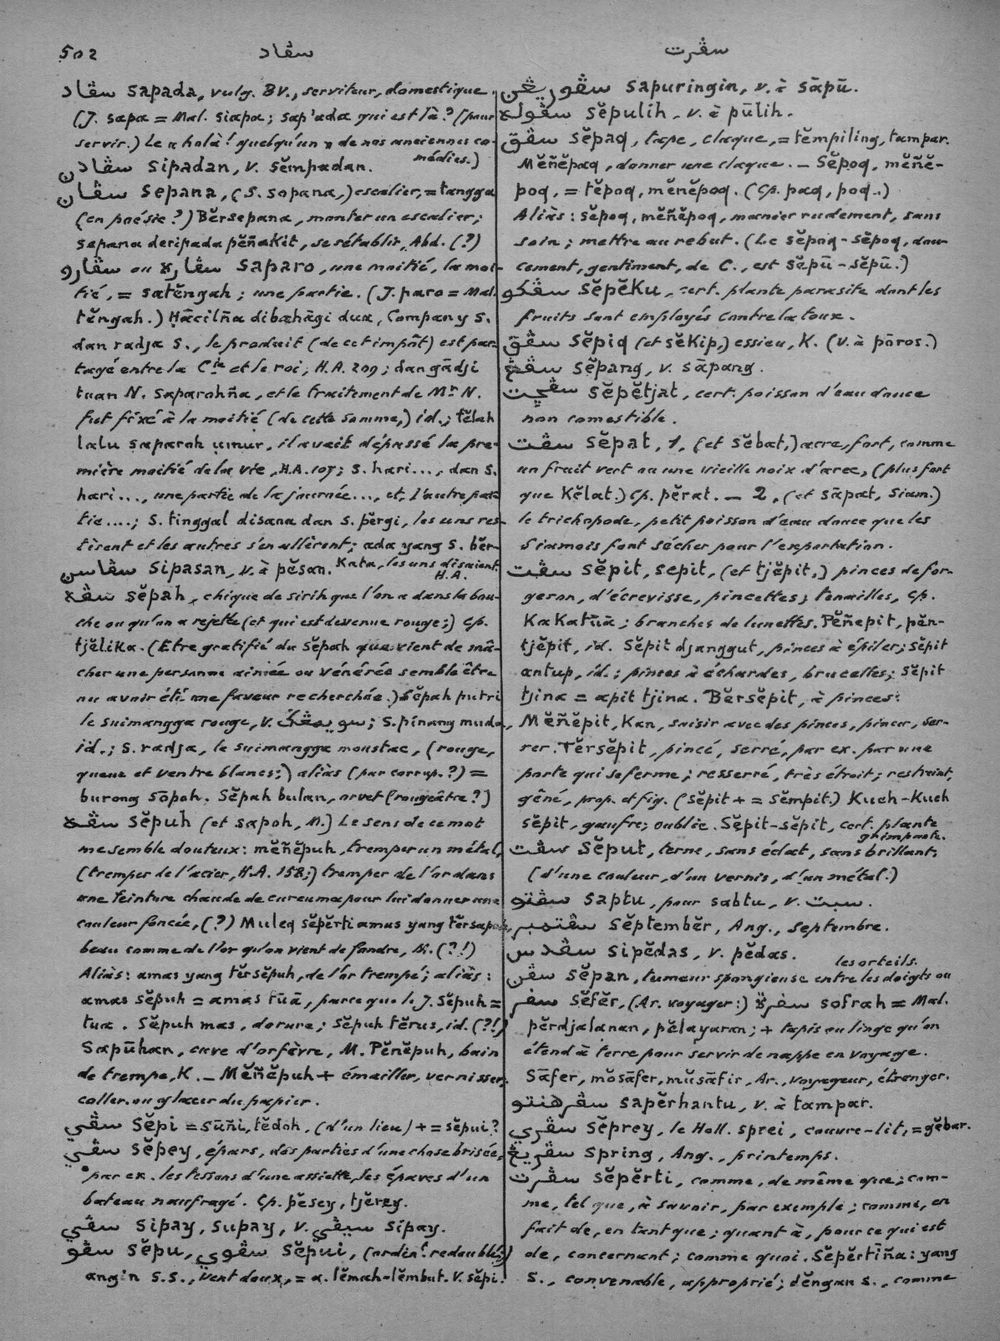 502
سڤاد
سڤرت
سڤاد sapada, vulg. BV., serviteur, domestique.
(J. sapa = Mal. siapa; sap'ada qui est là? (pour
servir.) Le « holà! quelqu'un » de nos anciennes co-
médies.)
سڤادن sipadan, v. sĕmpadan.
سڤان sepana, (S. sopana,) escalier, = tangga
(en poésie?) Bĕrsepana, monter un escalier;
sepana deripada pĕñakit, se rétablir, Abd. (?)
سڤارو ou سڤاره saparo, une moitié, la moi-
tié, = satĕngah; une partie. (J. paro = Mal.
tĕngah.) Ḥācilña dibahāgi dua, Company S.
dan radja S., le produit (de cet impôt) est par-
tagé entre la Cie et le roi, H.A. 209; dan gādji
tuan N. saparohña, et le traitement de Mr N.
fut fixé à la moitié (de cette somme,) id.; tĕlah
lalu saparoh umur, il avait dépassé la pre-
mière moitié de la vie, H.A. 107; S. hari..., dan S.
hari..., une partie de la journée..., et l'autre par-
tie....; S. tinggal disana dan S. pĕrgi, les uns res-
tèrent et les autres s'en allèrent; ada yang S. bĕr-
kata, les uns disaient
H.A.
سڤاسن sipasan, v. à pĕsan.
سڤه sĕpah, chique de sirih que l'on a dans la bou-
che ou qu'on a rejetée (et qui est devenue rouge;) Cp.
tjĕlika. (Etre gratifié du Sĕpah que vient de mâ-
cher une personne aimée ou vénérée semble être
ou avoir été une faveur recherchée.) Sĕpah putri
le suimangga rouge, v. سويمڠݢ; S. pinang muda,
id.; S. radja, le suimangga moustac, (rouge,
queue et ventre blancs;) aliàs (par corrup.?) =
burong sōpoh. Sĕpah bulan, orvet (rougeâtre?)
سڤه sĕpuh (et sapoh, M.) Le sens de ce mot
me semble douteux: mĕñĕpuh, tremper un métal,
(tremper de l'acier, H.A. 158;) tremper de l'or dans
une teinture chaude de curcuma pour lui donner une
couleur foncée, (?) Muleq sĕpĕrti amas yang tĕrsapoh,
beau comme de l'or qu'on vient de fondre, M. (?!)
Aliàs: amas yang tĕrsĕpuh, de l'or trempé; aliàs:
amas sĕpuh = amas tūā, parce que le J. Sĕpuh =
tua. Sĕpuh mas, dorure; Sĕpuh tĕrus, id. (?!)
Sapūhan, cuve d'orfèvre, M. Pĕnĕpuh, bain
de trempe, K. — Mĕñĕpuh + émailler, vernisser,
coller ou glacer du papier.
سڤي Sĕpi = sūñi, tĕdoh, (d'un lieu) + = sĕpui?
سڤي sĕpey, épars, des parties d'une chose brisée,
par ex. les tessons d'une assiette, les épaves d'un
bateau naufragé. Cp. pĕsey, tjĕrey.
سڤي sipay, supay, v. سيڤي sipay.
سڤو sĕpu, سڤوي sĕpui, (ordint redoublé,)
angin S.S., vent doux, = a. lĕmah-lĕmbut. V. sĕpi.
سڤوريڠن sapuringin, v. à sāpū.
سڤوله sĕpulih, v. à pūlih.
سڤق sĕpaq, tape, claque, = tĕmpiling, tampar.
Mĕñĕpaq, donner une claque. — Sĕpoq, mĕñĕ-
poq, = tĕpoq, mĕnĕpoq. (Cp. paq, poq.)
Aliàs: sĕpoq, mĕñĕpoq, manier rudement, sans
soin; mettre au rebut. (Le sĕpoq-sĕpoq, dou-
cement, gentiment, de C., est sĕpū-sĕpū.)
سڤكو sĕpĕku, cert. plante parasite dont les
fruits sont employés contre la toux.
سڤق sĕpiq (et sĕkip,) essieu, K. (V. à pōros.)
سڤڠ sĕpang, v. sāpang.
سڤچت sĕpĕtjat, cert. poisson d'eau douce
non comestible.
سڤت sĕpat, 1, (et sĕbat,) acre, fort, comme
un fruit vert ou une vieille noix d'arec, (plus fort
que kĕlat.) Cp. pĕrat. — 2, (et sāpat, Siam.)
le trichopode, petit poisson d'eau douce que les
Siamois font sécher pour l'exportation.
سڤت sĕpit, sepit, (et tjĕpit,) pinces de for-
geron, d'écrevisse, pincettes; tenailles, Cp.
kakatūā; branches de lunettes. Pĕñepit, pĕn-
tjĕpit, id. Sĕpit djanggut, pinces à épiler; sĕpit
antup, id.; pinces à échardes, brucelles; sĕpit
tjina = apit tjina. Bĕrsĕpit, à pinces:
Mĕñĕpit, kan, saisir avec des pinces, pincer, ser-
rer. Tĕrsĕpit, pincé, serré, par ex. par une
porte qui se ferme; resserré, très étroit; restreint,
gêné, prop. et fig. (Sĕpit + = sĕmpit.) Kueh-kueh
sĕpit, gaufre; oublie. Sĕpit-sĕpit, cert. plante
grimpante.
سڤت sĕput, terne, sans éclat, sans brillant,
(d'une couleur, d'un vernis, d'un métal.)
سڤتو saptu, pour sabtu, v. سبت.
سڤتمبر sĕptembĕr, Ang., septembre.
سڤدس sipĕdas, v. pĕdas.
les orteils.
سڤن sĕpan, tumeur spongieuse entre les doigts ou
سفر sĕfĕr, (Ar. voyager:) سفرة sofrah = Mal.
pĕrdjalanan, pĕlayaran; + tapis ou linge qu'on
étend à terre pour servir de nappe en voyage.
Sāfer, mōsāfer, mŭsāfir, Ar., voyageur, étranger.
سڤرهنتو sapĕrhantu, v. à tampar.
سڤري sĕprey, le Holl. sprei, couvre-lit, = gĕbar.
سڤريڠ spring, Ang., printemps.
سڤرت sĕpĕrti, comme, de même que; com-
me, tel que, à savoir, par exemple; comme, en
fait de, en tant que; quant à, pour ce qui est
de, concernant; comme quoi. Sĕpĕrtiña: yang
S., convenable, approprié; dĕngan S., comme